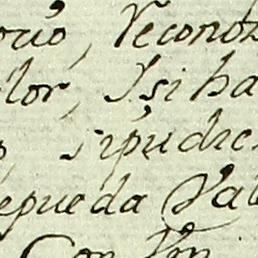 ocio, Reconoz
lor, Y si ha
si pudie
se pueda Val
Con